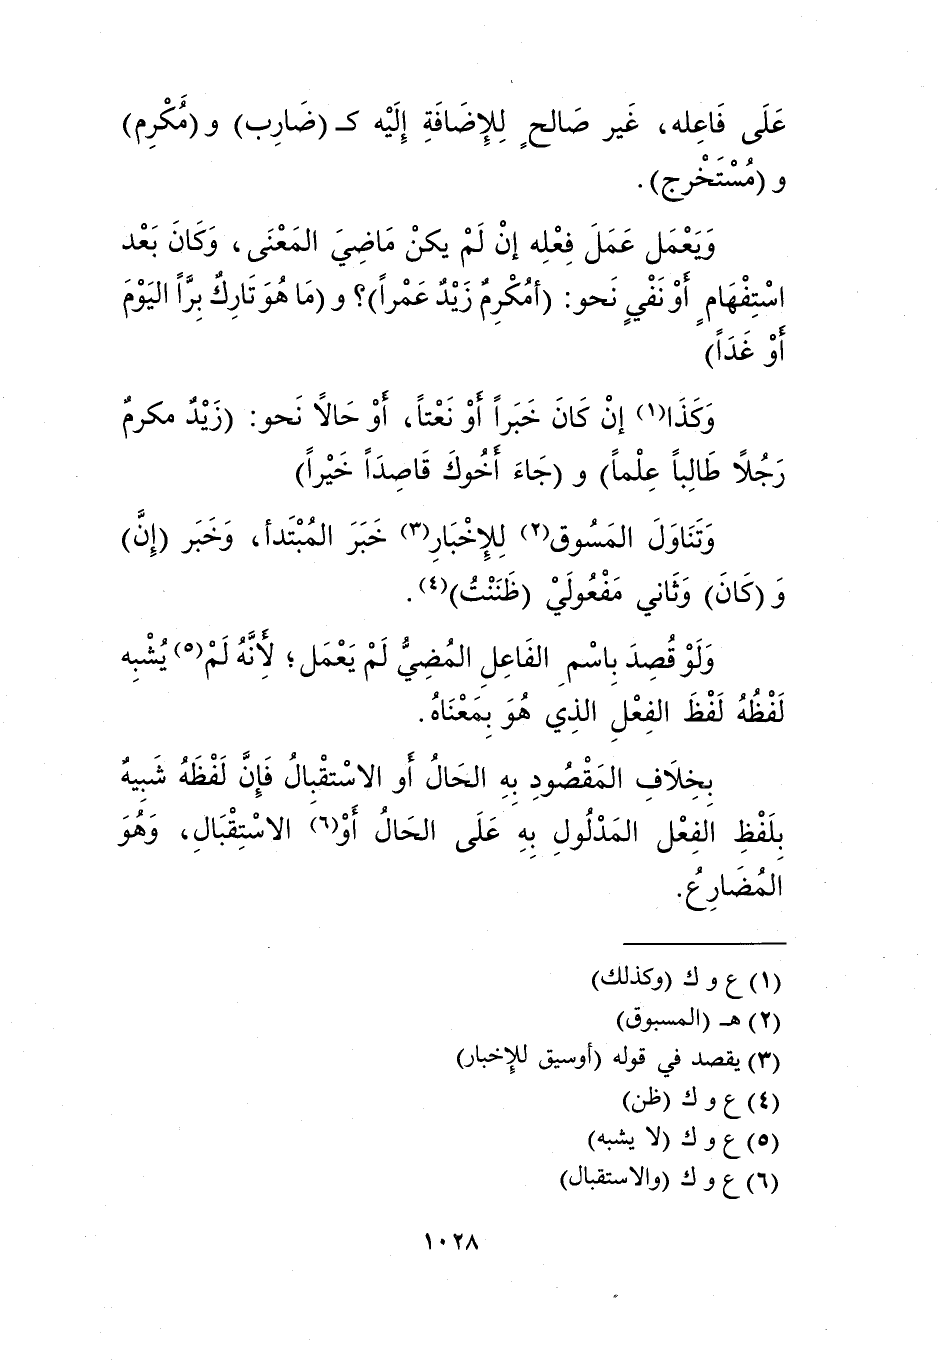 عَلَى فَاعِله، غَير صَالحٍ لِلإِضَافَةِ إِلَيْه كـ (ضَارِب) و (مُكْرِم)
و (مُسْتَخْرِج).
وَيَعْمَل عَمَلَ فِعْلِه إنْ لَمْ يكنْ مَاضِيَ المَعْنَى، وَكَانَ بَعْد
اسْتِفْهَامٍ أَوْ نَفْيٍ نَحو: (أمُكْرِمٌ زَيْدٌ عَمْراً)؟ و (مَا هُوَ تَارِكٌ بِرَّاً اليَوْمَ
أَوْ غَدَاً)
وَكَذَا(١) إنْ كَانَ خَبَراً أَوْ نَعْتاً، أَوْ حَالًا نَحو: (زَيْدٌ مكرمٌ
رَجُلًا طَالِباً عِلْماً) و (جَاءَ أَخُوكَ قَاصِدَاً خَيْراً)
وَتَنَاوَلَ المَسُوق(٢) لِلإِخْبَارِ(٣) خَبَرَ المُبْتَدأ، وَخَبَر (إِنَّ)
وَ (كَانَ) وَثَاني مَفْعُولَيْ (ظَنَنْتُ)(٤).
وَلَوْ قُصِدَ بِاسْمِ الفَاعِلِ المُضِيُّ لَمْ يَعْمَل؛ لِأَنَّهُ لَمْ(٥) يُشْبِه
لَفْظُهُ لَفْظَ الفِعْلِ الذِي هُوَ بِمَعْنَاهُ.
بِخِلَافِ المَقْصُودِ بِهِ الحَالُ أَو الاسْتقْبِالُ فَإِنَّ لَفْظَهُ شَبِيهٌ
بِلَفْظِ الفِعْل المَدْلُولِ بِهِ عَلَى الحَالُ أَوْ(٦) الاسْتِقْبَالِ، وَهُوَ
المُضَارِعُ.
(١) ع و ك (وكذلك)
(٢) هـ (المسبوق)
(٣) يقصد في قوله (أوسيق للإخبار)
(٤) ع و ك (ظن)
(٥) ع و ك (لا يشبه)
(٦) ع و ك (والاستقبال)
١٠٢٨